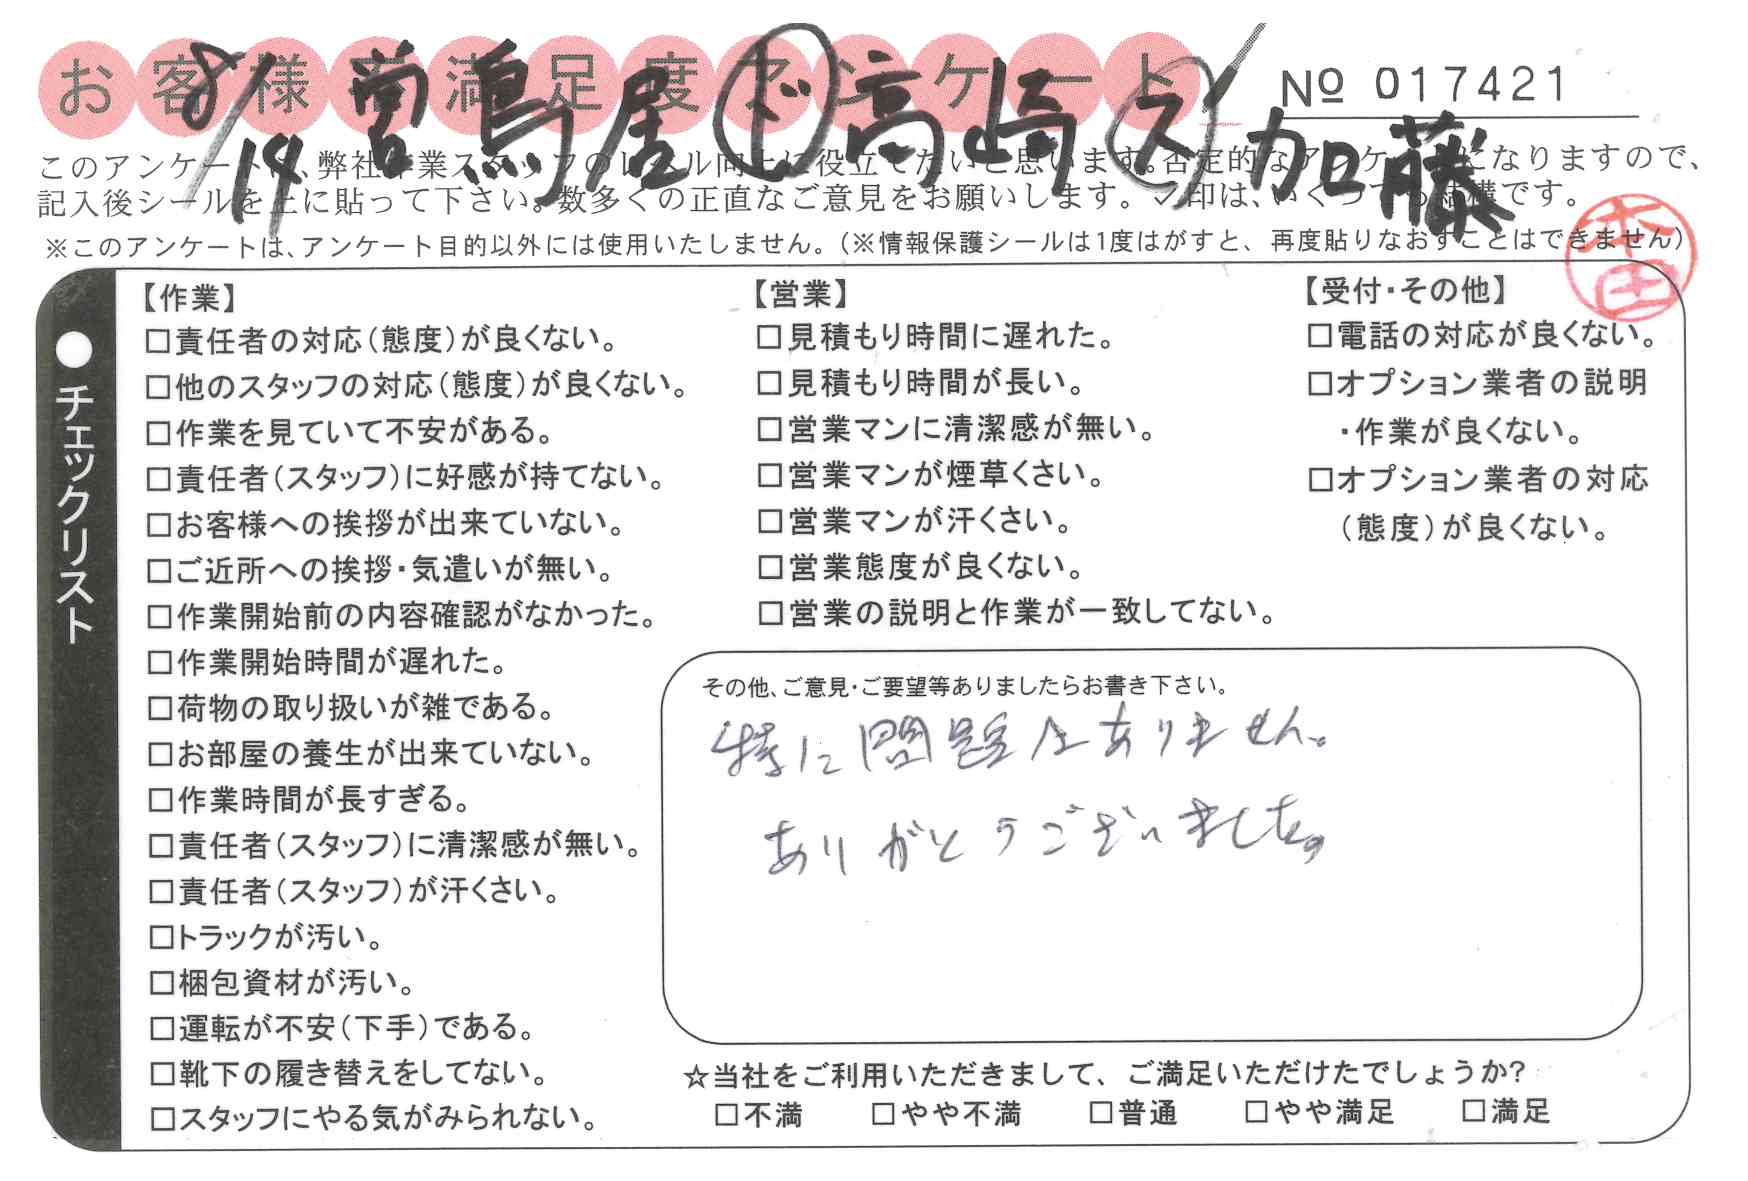 お客様満足度アンケート
№ 017421
8/14 営鳥居 ド高崎 ス/加藤
このアンケートは、弊社作業スタッフのレベル向上に役立てたいと思います。否定的なアンケートになりますので、
記入後シールを上に貼って下さい。数多くの正直なご意見をお願いします。✓印は、いくつでも結構です。
※このアンケートは、アンケート目的以外には使用いたしません。(※情報保護シールは1度はがすと、再度貼りなおすことはできません)
本田
●チェックリスト
【作業】
□責任者の対応(態度)が良くない。
□他のスタッフの対応(態度)が良くない。
□作業を見ていて不安がある。
□責任者(スタッフ)に好感が持てない。
□お客様への挨拶が出来ていない。
□ご近所への挨拶・気遣いが無い。
□作業開始前の内容確認がなかった。
□作業開始時間が遅れた。
□荷物の取り扱いが雑である。
□お部屋の養生が出来ていない。
□作業時間が長すぎる。
□責任者(スタッフ)に清潔感が無い。
□責任者(スタッフ)が汗くさい。
□トラックが汚い。
□梱包資材が汚い。
□運転が不安(下手)である。
□靴下の履き替えをしてない。
□スタッフにやる気がみられない。
【営業】
□見積もり時間に遅れた。
□見積もり時間が長い。
□営業マンに清潔感が無い。
□営業マンが煙草くさい。
□営業マンが汗くさい。
□営業態度が良くない。
□営業の説明と作業が一致してない。
【受付・その他】
□電話の対応が良くない。
□オプション業者の説明
・作業が良くない。
□オプション業者の対応
(態度)が良くない。
その他、ご意見・ご要望等ありましたらお書き下さい。
特に問題はありません。
ありがとうございました。
☆当社をご利用いただきまして、ご満足いただけたでしょうか?
□不満 □やや不満 □普通 □やや満足 □満足